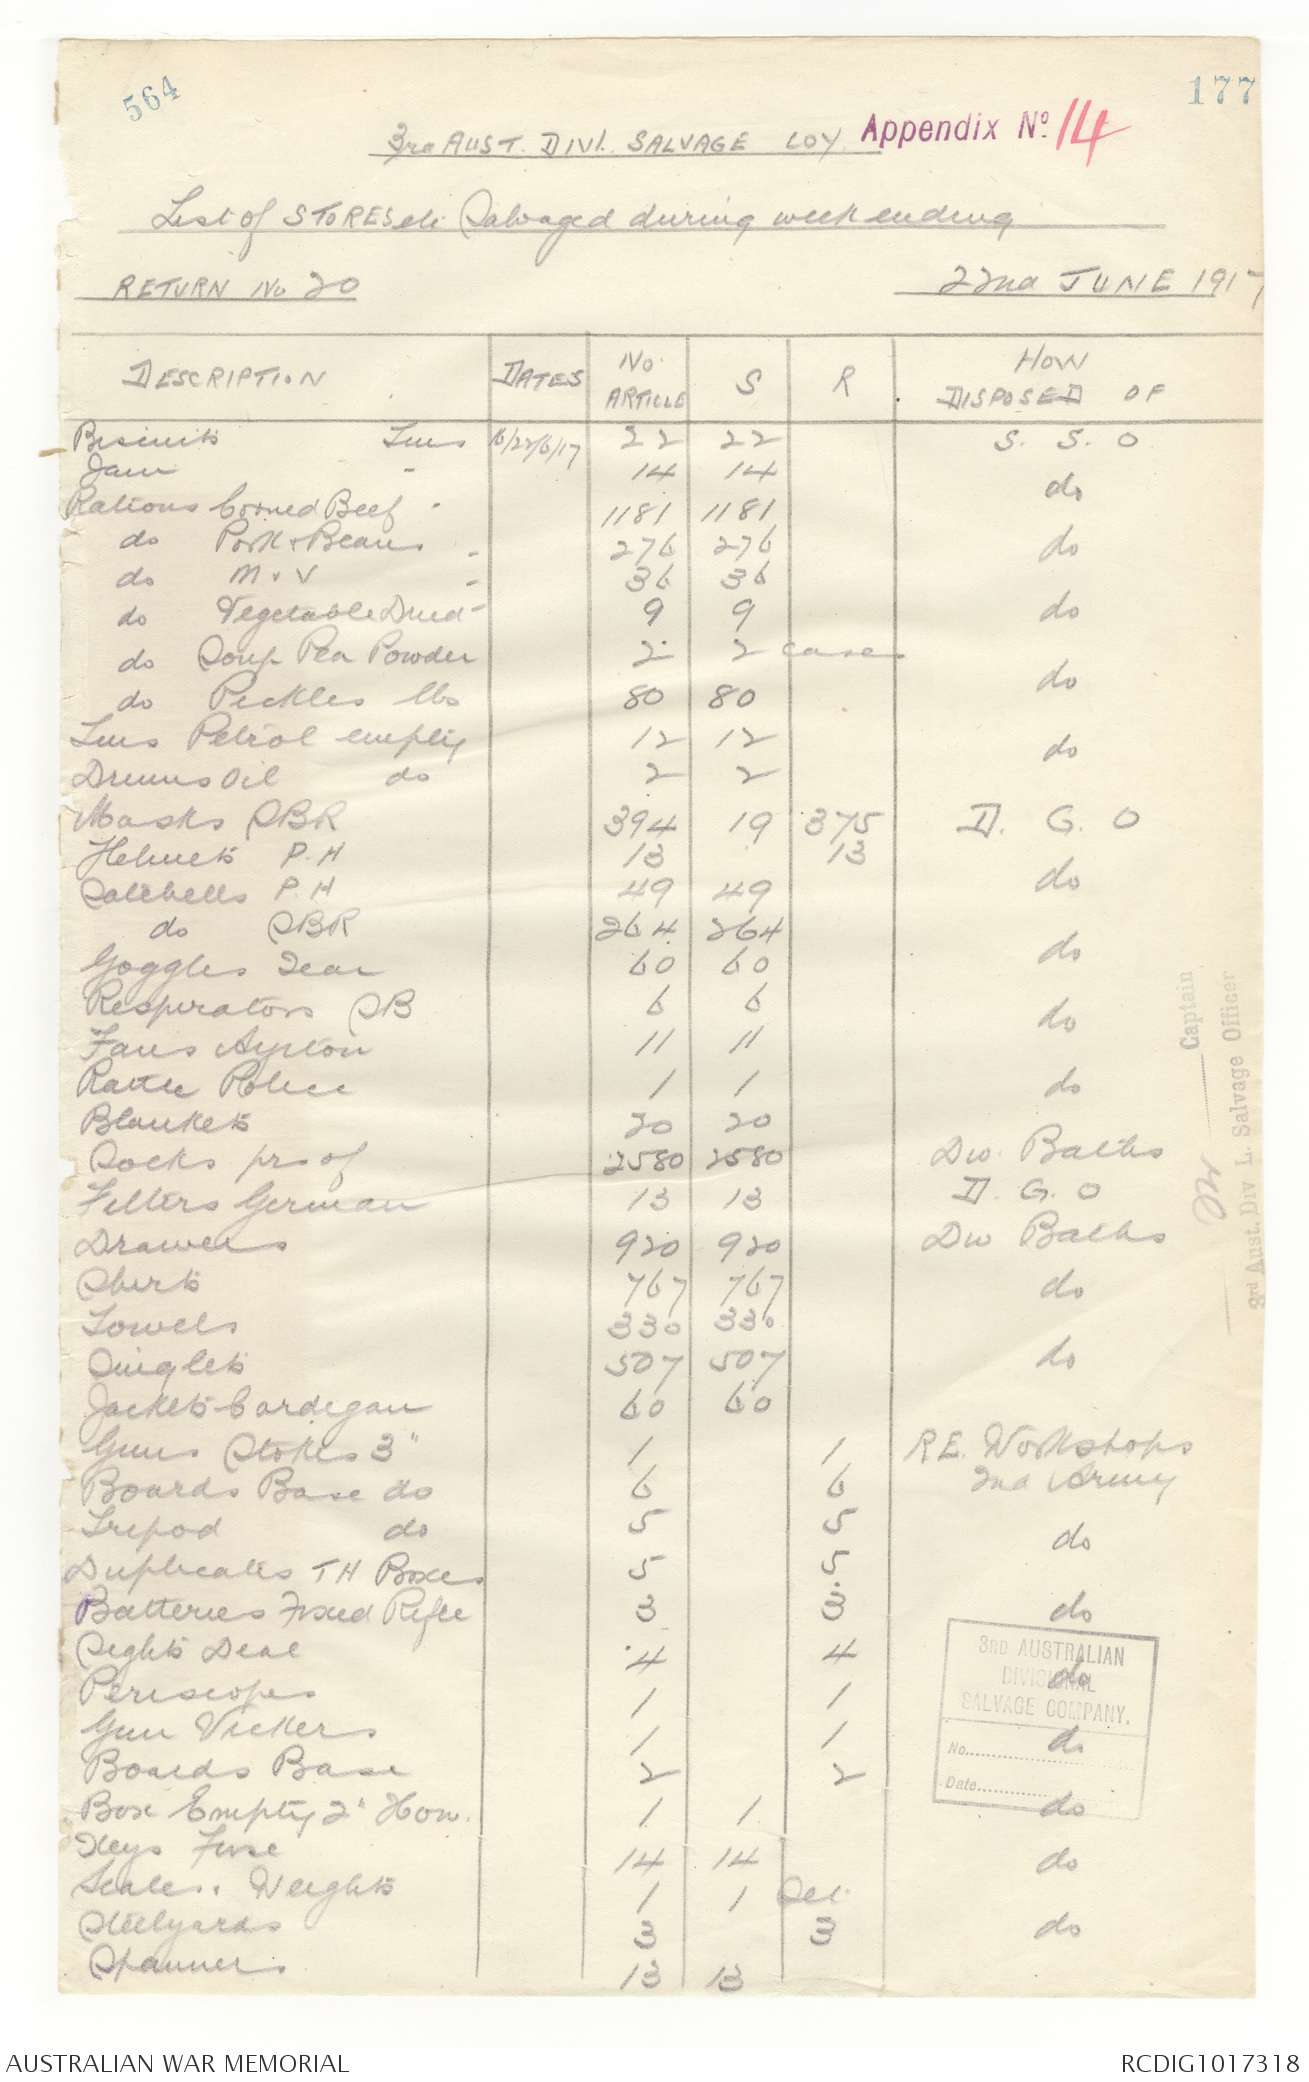 564
177
3rd AUST. DIVL. SALVAGE COY. Appendix No. 14
List of STORES etc Salvaged during week ending
RETURN No 20 22nd JUNE 1917
DESCRIPTION DATES No. ARTICLE S R HOW DISPOSED OF
Biscuits Tins 16/22/6/17 22 22 S. S. O
Jam " 14 14
do
Rations Corned Beef " 1181 1181
do Pork & Beans " 276 276 do
do M & V " 36 36
do Vegetable Dried " 9 9 do
do Soup Pea Powder 2 2 cases
do
do Pickles lbs 80 80
Tins Petrol empty 12 12
do
Drums Oil do 2 2
Masks SBR 394 19 375 D. G. O
Helmets P.H 13 13
do
Satchells P.H 49 49
do SBR 264 264
do
Goggles Tear 60 60
Respirators SB 6 6
do
Fans Ayrton 11 11
Rattle Police 1 1 do
Blankets 20 20
Socks pr of 2580 2580 Div. Baths
Filters German 13 13 D. G. O
Drawers 920 920 Div Baths
Shirts 767 767 do
Towels 330 330
Singlets 507 507 do
Jackets Cardigan 60 60
Guns Stokes 3" 1 1 R.E. Workshops
Boards Base do 6 6 2nd Army
Tripod do 5 5
do
Duplicates T H Boxes 5 5
Batteries Fixed Rifle 3 3 do
Sights Dial 4 4
do
Periscopes 1 1
Gun Vickers 1 1 do
Boards Base 2 2
Box Empty 2" How. 1 1 do
Keys Fuse 14 14
do
Scales & Weights 1 1 Set
Steelyards 3 3 do
Spanners 13 13
Captain
3rd Aust. Div L. Salvage Officer
3RD AUSTRALIAN
DIVISIONAL
SALVAGE COMPANY.
No.
Date
AUSTRALIAN WAR MEMORIAL RCDIG1017318